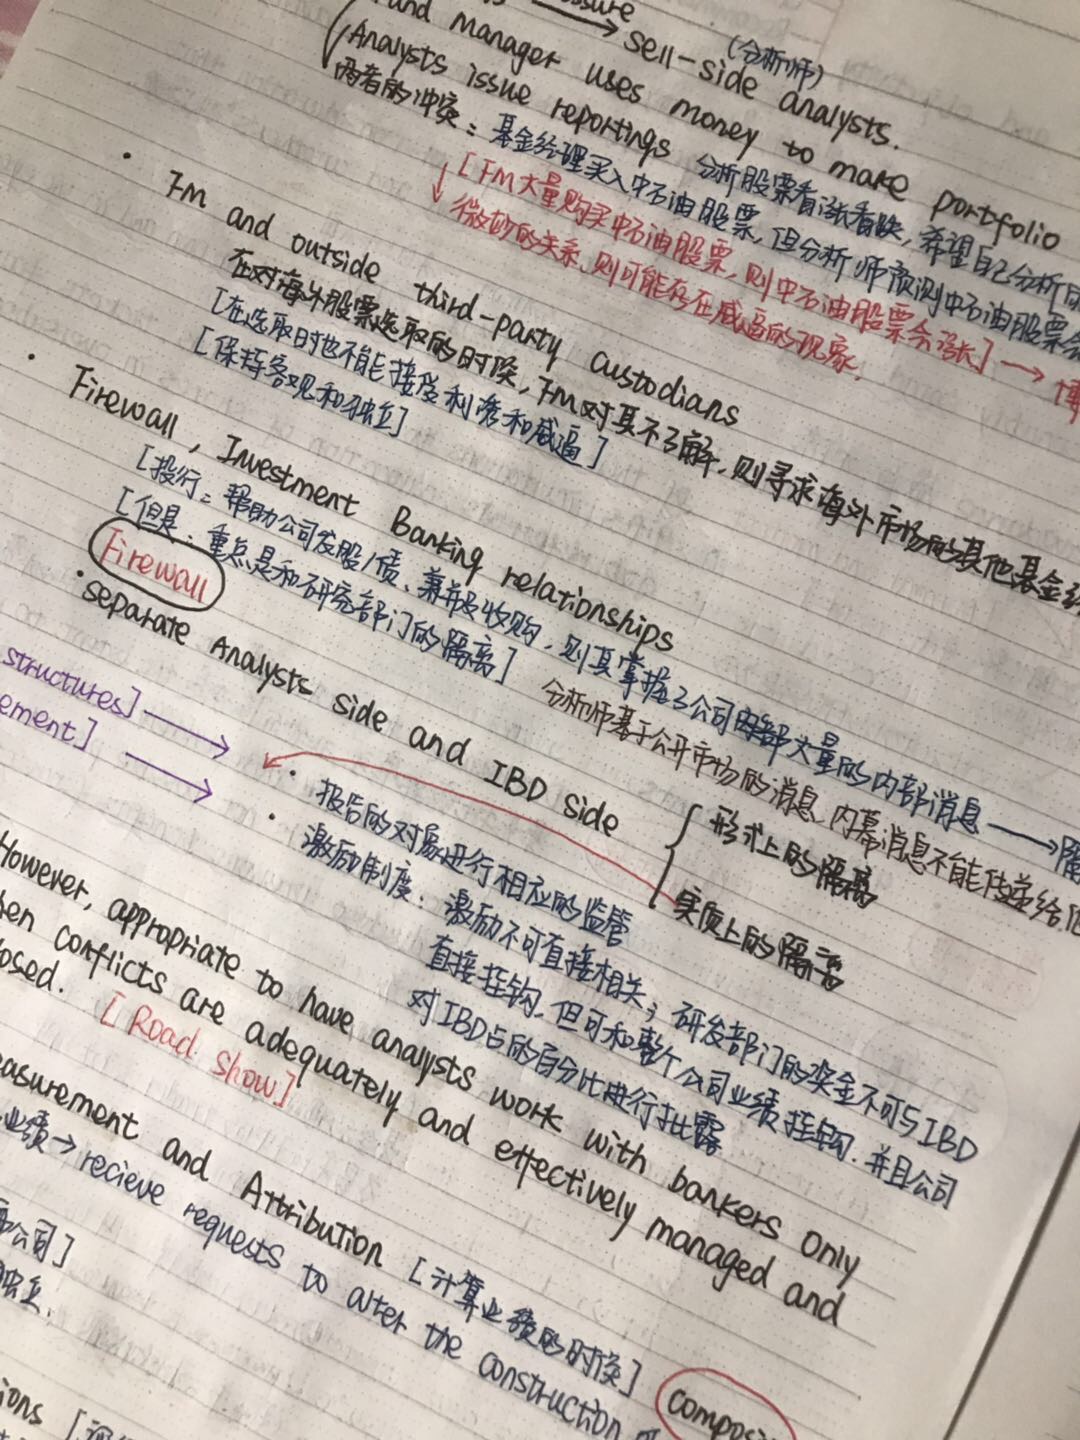 sell-side analysts.
(分析师)
manager uses money to make portfolio
Analysts issue reportings 分析股票看涨看跌,希望自己分析
两者的冲突:基金经理买入中石油股票,但分析师预测中石油股票会
[FM大量购买中石油股票,则中石油股票会涨] →
微妙的关系,则可能存在威逼的现象,
· FM and outside third-party custodians
在对海外股票选取的时候,FM对其不了解,则寻求海外市场的其他基金
[在选取时也不能接受利诱和威逼]
[保持客观和独立]
· Firewall, Investment Banking relationships
[投行:帮助公司发股/债、兼并及收购,则其掌握了公司内部大量的内部消息 →
[但是:重点是和研究部门的隔离] 分析师基于公开市场的消息,内幕消息不能传递给
Firewall
· separate Analysts side and IBD side { 形式上的隔离
实质上的隔离
structures] →
· 报告的对象进行相应的监管
· 激励制度:激励不可直接相关;研发部门的奖金不可与IBD
直接挂钩,但可和整个公司业绩挂钩.并且公司
对IBD占的百分比进行披露
However, appropriate to have analysts work with bankers only
conflicts are adequately and effectively managed and
[Road Show]
and Attribution [计算业绩的时候]
业绩→recieve requests to alter the construction
公司]
独立.